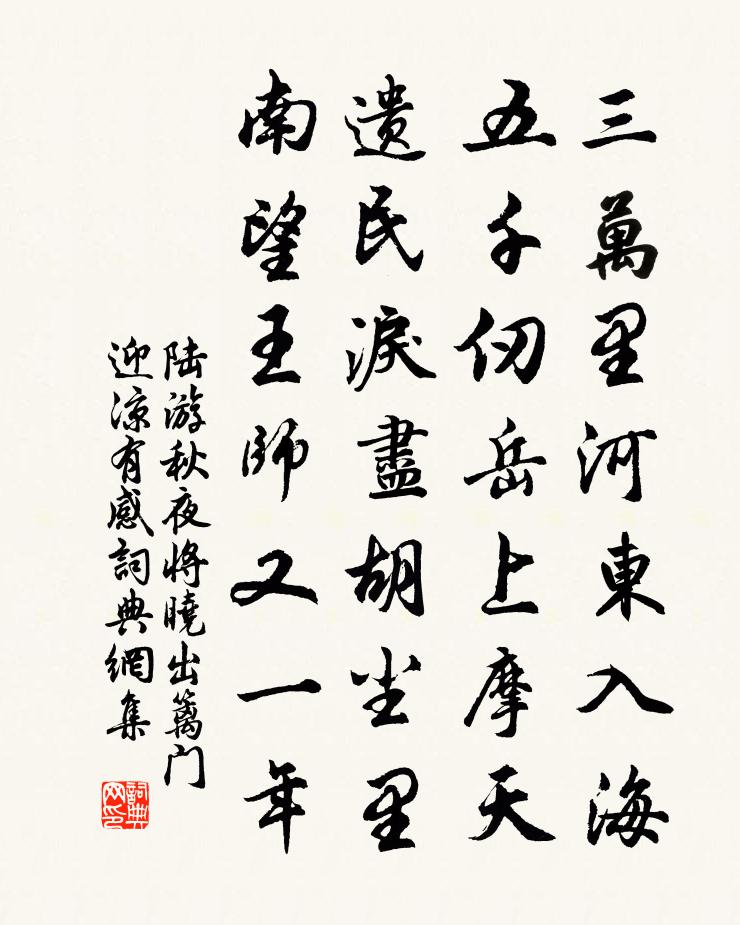 三萬里河東入海
五千仞岳上摩天
遺民淚盡胡尘里
南望王師又一年
陆游秋夜将曉出篱门
迎凉有感詞典網集
詞典网印